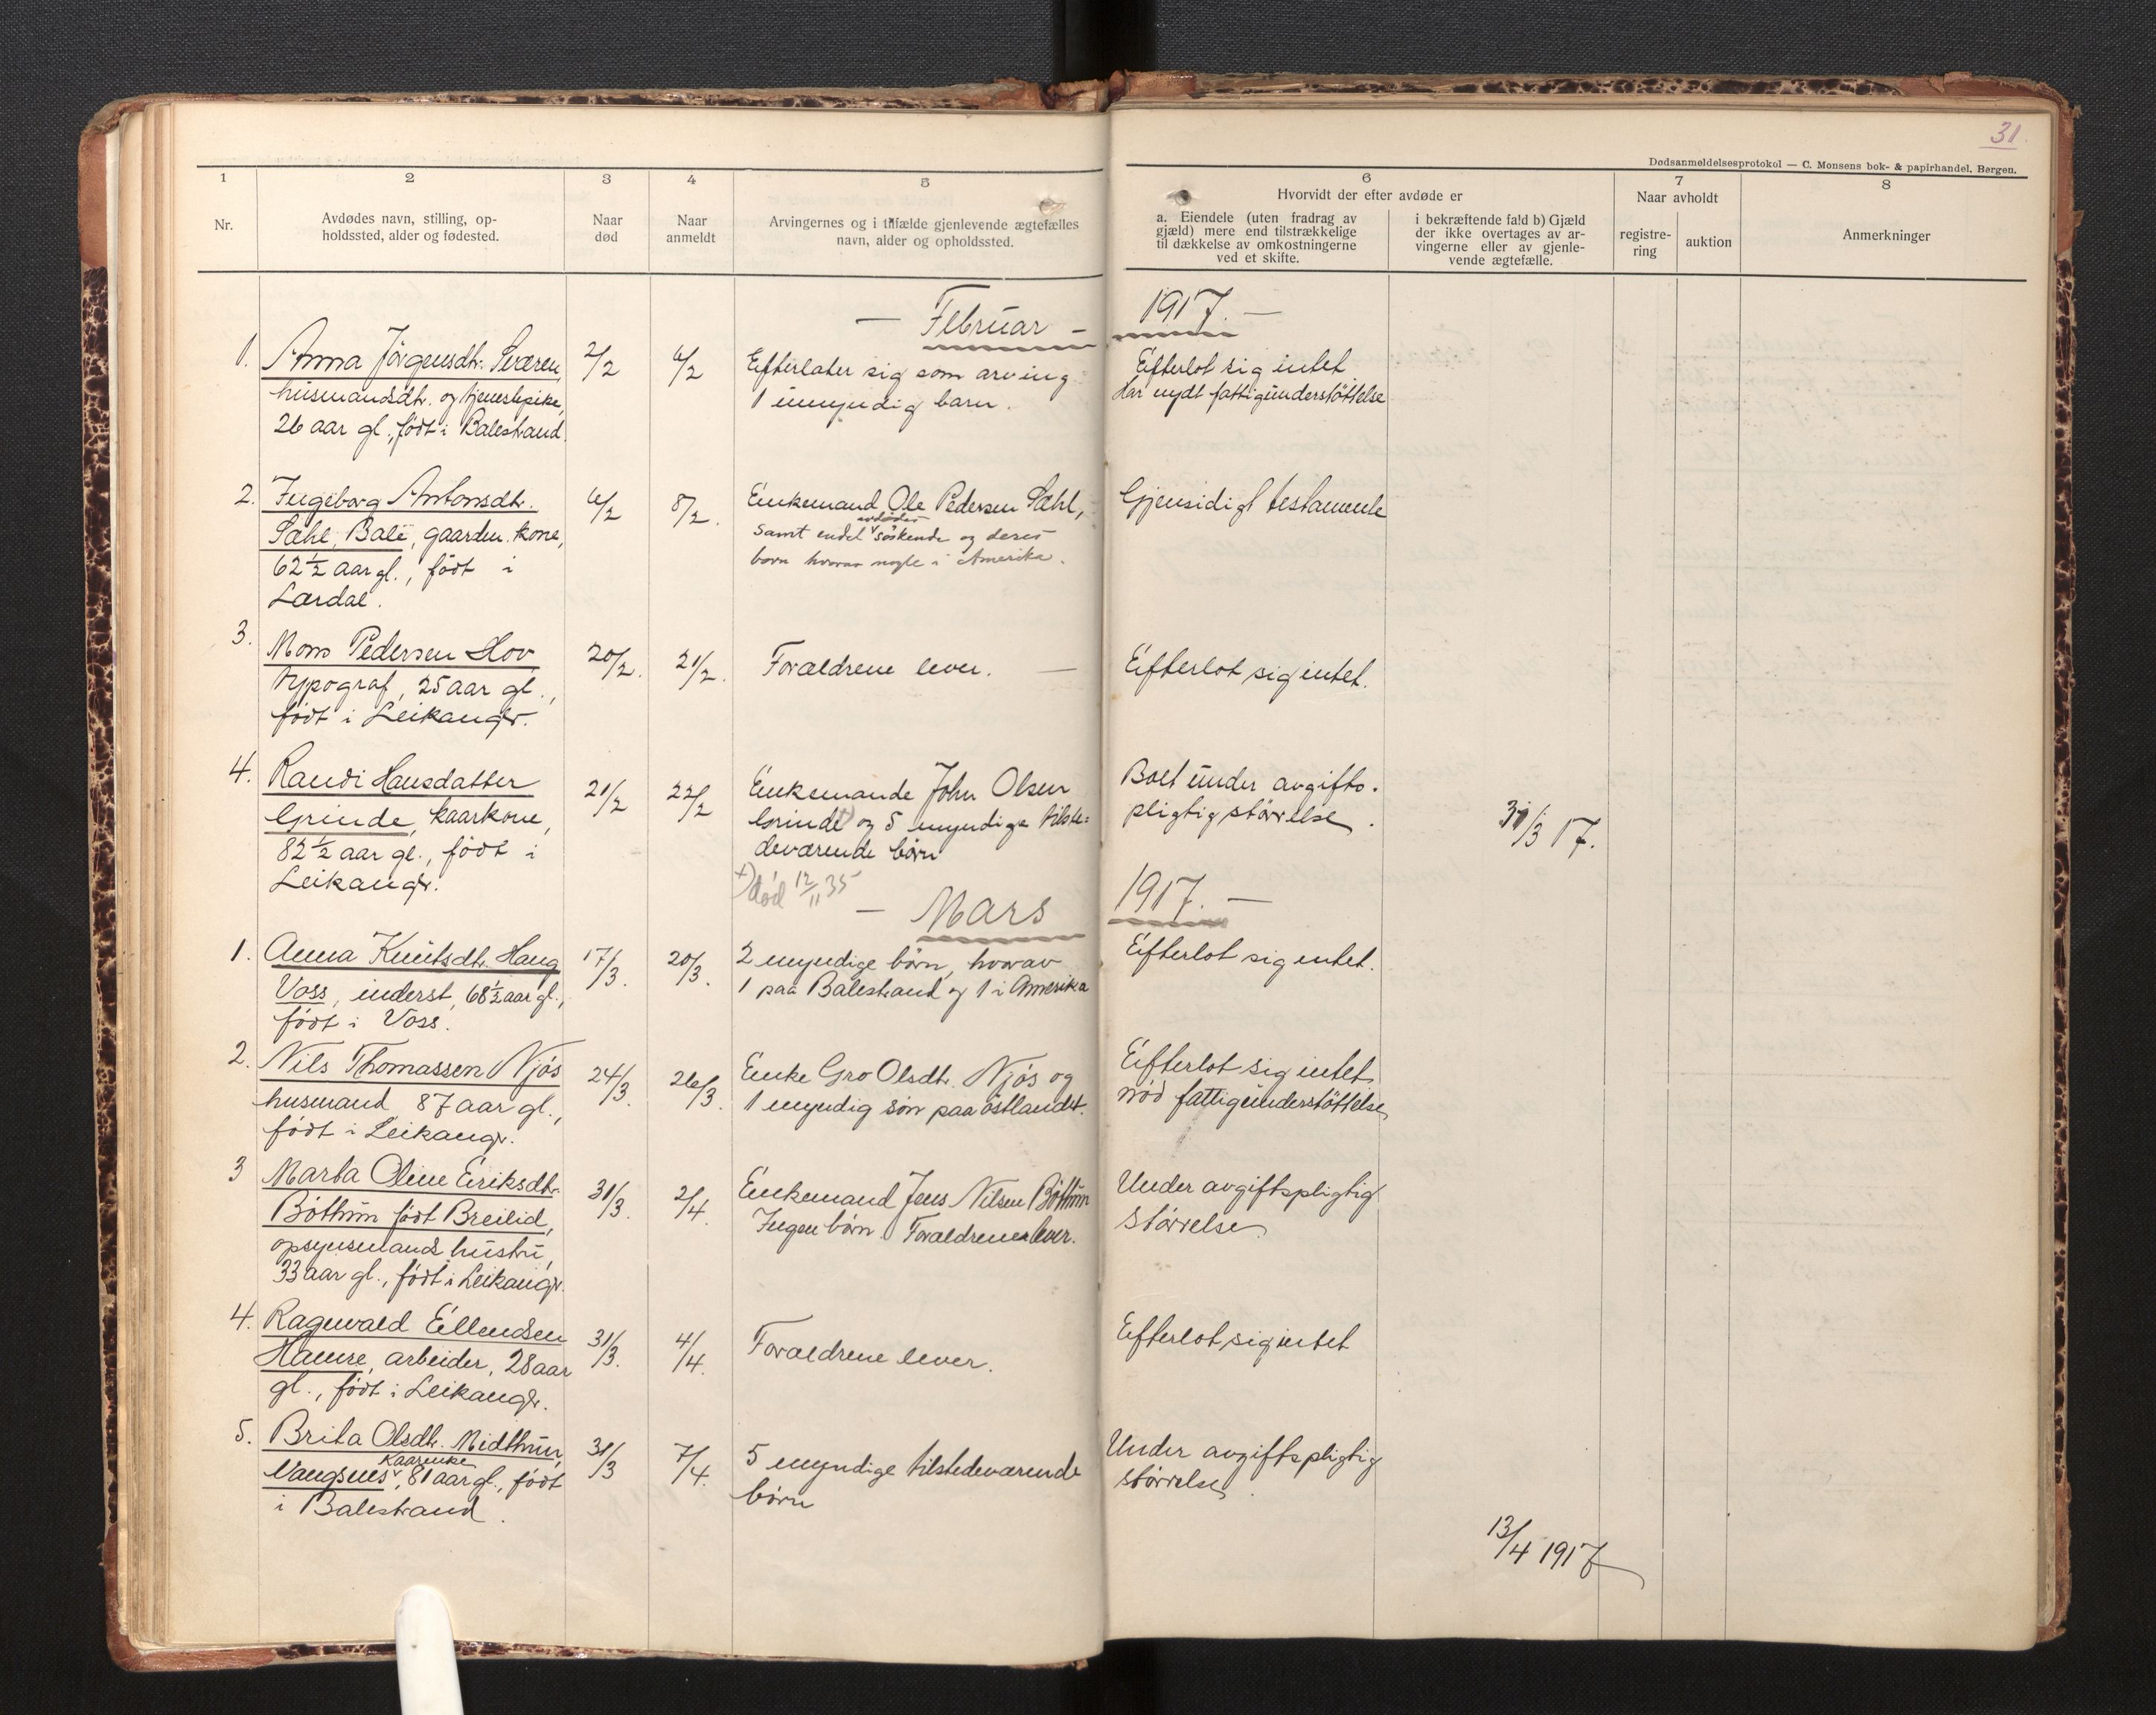 31.
Dødsanmeldelsesprotokol — C. Monsens bok- & papirhandel, Bergen.
1
Nr.
2
Avdødes navn, stilling, op-
holdssted, alder og fødested.
3
Naar
død
4
Naar
anmeldt
5
Arvingernes og i tilfælde gjenlevende ægtefælles
navn, alder og opholdssted.
6
Hvorvidt der efter avdøde er
a. Eiendele (uten fradrag av
gjæld) mere end tilstrækkelige
til dækkelse av omkostningerne
ved et skifte.
i bekræftende fald b) Gjæld
der ikke overtages av ar-
vingerne eller av gjenle-
vende ægtefælle.
7
Naar avholdt
registre-
ring
auktion
8
Anmerkninger
— Februar — 1917. —
1.
Anna Jörgensdtr. Sværen,
husmandsdtr. og tjenestepike,
26 aar gl., født i Balestrand.
2/2
6/2
Efterlater sig som arving
1 umyndig barn.
Efterlot sig intet
Har nydt fattigunderstöttelse
2.
Ingeborg Antonsdtr.
Sæhl, Bale, gaardm. kone,
62 1/2 aar gl., født i
Lærdal.
6/2
8/2.
Enkemand Ole Pedersen Sæhl,
samt endel avdødes söskende og deres
børn hvorav nogle i Amerika.
Gjensidigt testamente
3.
Mons Pedersen Hov
typograf, 25 aar gl.,
född i Leikanger.
20/2.
21/2.
Forældrene lever. —
Efterlot sig intet.
4.
Randi Hansdatter
Grinde, kaarkone,
82 1/2 aar gl., født i
Leikangr.
21/2
22/2
Enkemande John Olsen
Grinde +) og 5 myndige tilste=
deværende børn
+) død 12/11 35
Boet under avgifts.
pligtig störrelse.
31/3 17.
— Mars 1917. —
1.
Anna Knutsdtr. Haug
Voss, inderst, 68 1/2 aar gl.,
født i Voss.
17/3.
20/3.
2 myndige børn, hvorav
1 paa Balestrand og 1 i Amerika
Efterlot sig intet.
2.
Nils Thomassen Njøs
husmand, 87 aar gl.,
født i Leikangr.
24/3.
26/3.
Enke Gro Olsdtr. Njøs og
1 myndig søn paa østlandt.
Efterlot sig intet
nöd fattigunderstöttelse
3
Marta Oline Eriksdtr.
Böthun født Breilid,
opsynsmands hustru,
33 aar gl., født i Leikangr.
31/3.
2/4.
Enkemand Jens Nilsen Böthun
Ingen børn. Forældrene lever.
Under avgiftspligtig
störrelse.
4.
Ragnvald Ellendsen
Hamre, arbeider, 28 aar
gl., født i Leikangr.
31/3.
4/4.
Forældrene lever.
Efterlot sig intet
5.
Brita Olsdtr. Midthun,
Vangsnes, kaarenke, 81 aar gl., født
i Balestrand.
31/3
7/4.
5 myndige tilstedeværende
børn
Under avgiftspligtig
störrelse.
13/4 1917